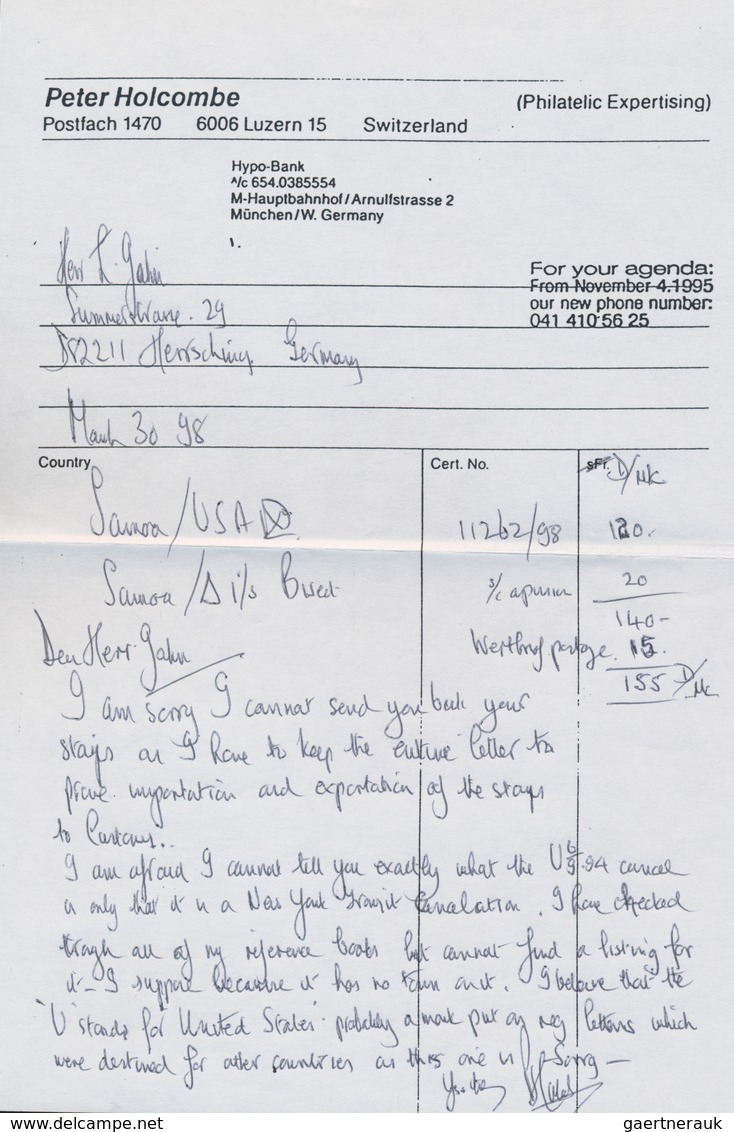 Peter Holcombe (Philatelic Expertising)
Postfach 1470 6006 Luzern 15 Switzerland
Hypo-Bank
A/c 654.0385554
M-Hauptbahnhof/Arnulfstrasse 2
München/W. Germany
Herr L. Gahn
For your agenda:
From November 4.1995
our new phone number:
041 410 56 25
Summerstrasse. 29
D82211 Herrsching Germany
March 30 98
Country Cert. No. sFr. D/Mk
Samoa/USA 11262/98 120.
Samoa/Δ 1/s Bisect s/c opinion 20
140-
Dear Herr Gahn Wertbrief postage. 15.
155 D/Mk
I am sorry I cannot send you back your
stamps as I have to keep the entire letter to
prove importation and exportation of the stamps
to Customs..
I am afraid I cannot tell you exactly what the U 6/9.94 cancel
is only that it is a New York Transit Cancelation. I have checked
trough all of my reference books but cannot find a listing for
it - I suppose because it has no town on it. I believe that the
'U' stands for United States. probably a mark put on reg letters which
were destined for other countries as this one is. Sorry —
Yours